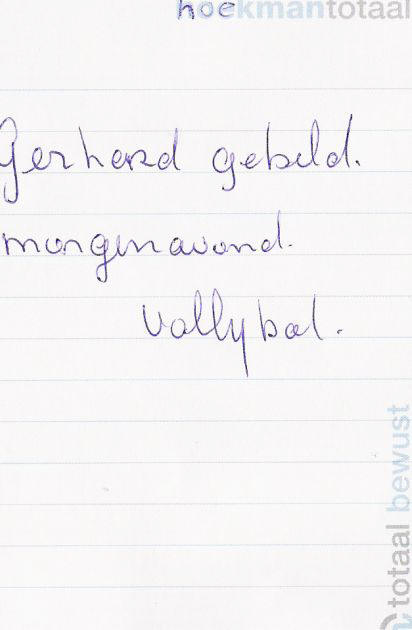 hoekmantotaal
Gerhard gebeld.
morgenavond.
Vollybal.
totaal bewust